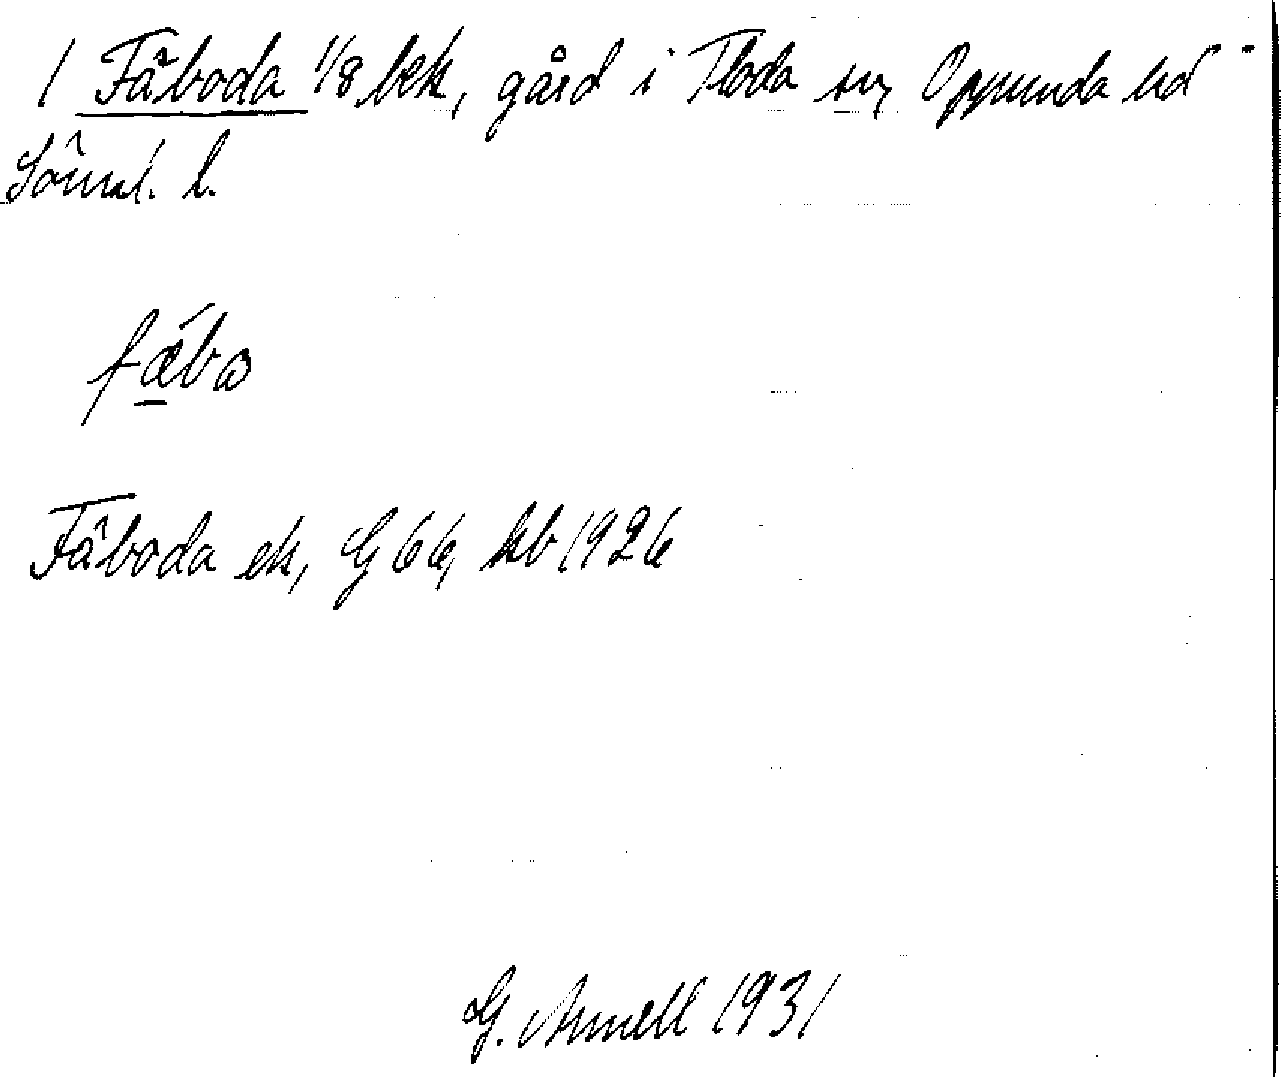 1 Fäboda 1/8 bek, gård i Floda sn, Oppunda hd
Söml. l.
fǽba
Fäboda ek, G 66, kb 1926
G. Arnell 1931